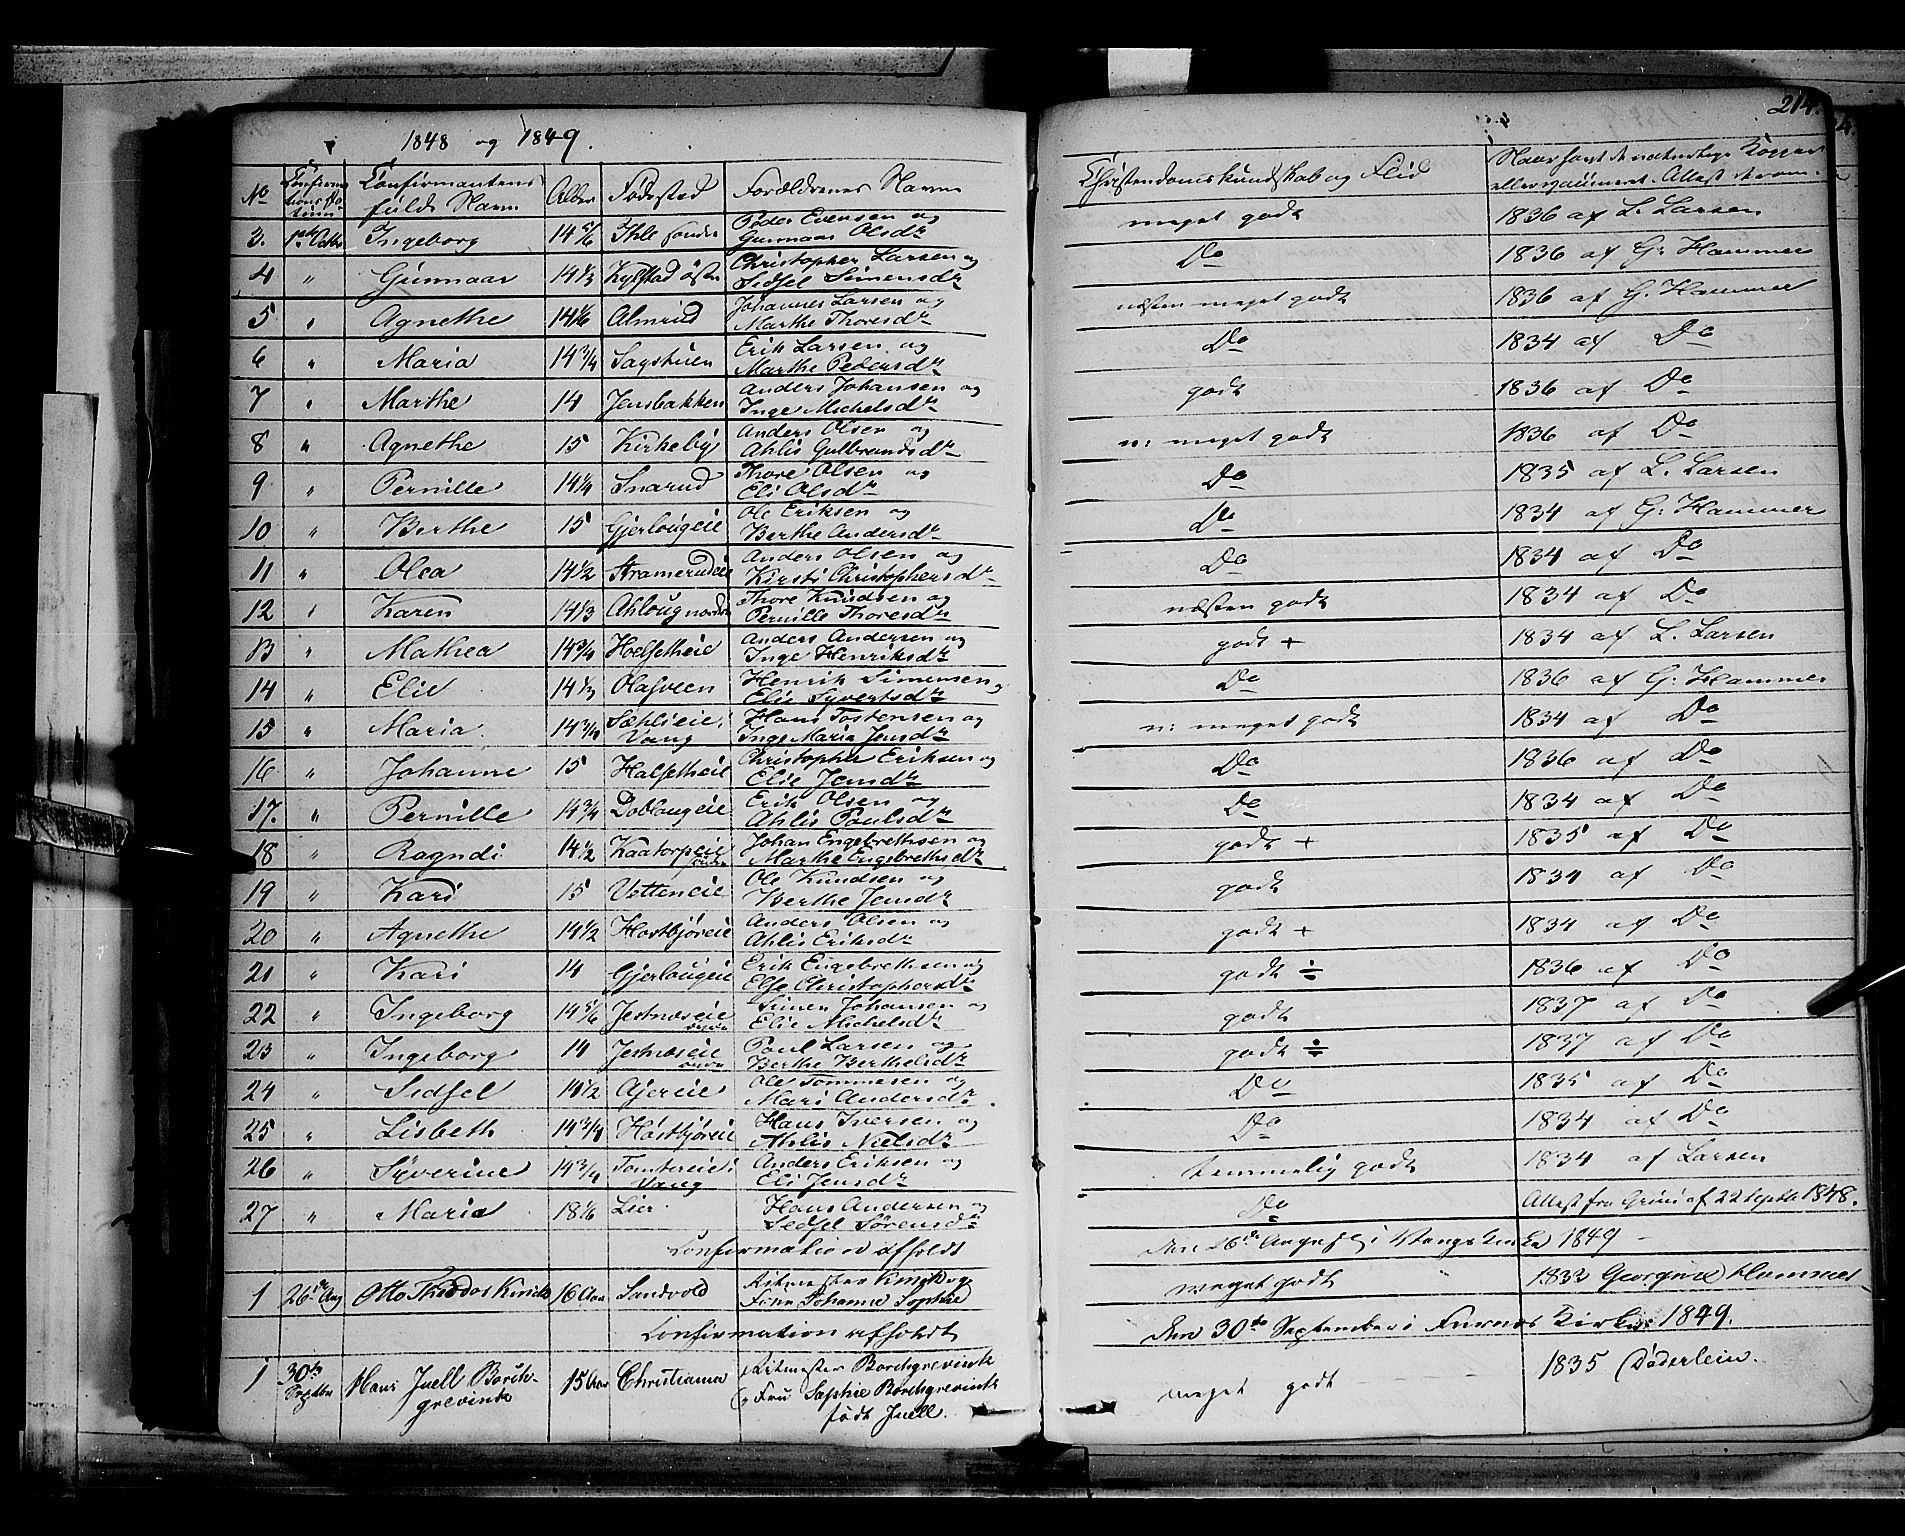 1848 og 1849.
214.
No Confirmations Datum Confirmantens fulde Navn Alder Fødested Forældrenes Navne Christendomskundskab og Flid Naar havt de naturlige Kopper eller vaccineret. Attest derom.
3. 1ste Octbr Ingeborg 14 5/6 Ihle søndre Peder Evensen og Gunmaar Olsdr meget godt 1836 af L. Larsen
4 " Gunmaar 14 1/3 Kylstad østre Christopher Larsen og Sidsel Simensdr Do 1836 af G: Hammer
5 " Agnethe 14 1/6 Almrud Johannes Larsen og Marthe Thoresdr næsten meget godt 1836 af G: Hammer
6 " Maria 14 3/4 Sagstuen Erik Larsen og Marthe Pedersdr Do 1834 af Do
7 " Marthe 14 Jensbakken Anders Johansen og Inge Michelsdr godt 1836 af Do
8 " Agnethe 15 Kirkeby Anders Olsen og Ahlis Gulbrandsdr n: meget godt 1836 af Do
9 " Pernille 14 1/4 Snarud Thore Olsen og Eli Olsdr Do 1835 af L. Larsen
10 " Berthe 15 Gjerlougeie Ole Eriksen og Berthe Andersdr Do 1834 af G: Hammer
11 " Olea 14 1/2 Stramerudeie Anders Olsen og Kirsti Christophersdr Do 1834 af Do
12 " Karen 14 1/3 Ahloug nordre Thore Knudsen og Pernille Thoresdr næsten godt 1834 af Do
13 " Mathea 14 3/4 Helsetheie Anders Andersen og Inge Henriksdr godt + 1834 af L. Larsen
14 " Elie 14 1/3 Olasveen Henrik Simensen og Elie Syvertsdr Do 1836 af G: Hammer
15 " Maria 14 3/4 Sæhlieie i Vang Hans Tostensen og Inge Maria Jensdr n: meget godt 1834 af Do
16 " Johanne 15 Halsetheie Christopher Eriksen og Elie Jensdr Do 1836 af Do
17. " Pernille 14 3/4 Dobbougeie Erik Olsen og Ahlis Paulsdr Do 1834 af Do
18 " Ragndi 14 1/2 Kaatorpeie søndre Johan Engebrethsen og Marthe Engebrethsdr godt + 1835 af Do
19 " Kari 15 Vetteneie Ole Knudsen og Berthe Jensdr godt 1834 af Do
20 " Agnethe 14 1/2 Hostbjøreie Anders Olsen og Ahlis Eriksdr godt + 1834 af Do
21 " Kari 14 Gjerlougeie Erik Engebrethsen og Else Christophersdr godt ÷ 1836 af Do
22 " Ingeborg 14 5/6 Jestnæseie Simen Johansen og Elie Michelsdr godt 1837 af Do
23 " Ingeborg 14 Jestnæseie Poul Larsen og Berthe Berthelsdr godt ÷ 1837 af Do
24 " Sidsel 14 1/2 Ajereie Ole Tommesen og Mari Andersdr Do 1835 af Do
25 " Lisbeth 14 3/4 Hostbjøreie Hans Iversen og Ahlis Nielsdr Do 1834 af Do
26 " Syverine 14 3/4 Tomtereie i Vang Anders Eriksen og Eli Jensdr temmelig godt 1834 af Larsen
27 " Maria 18 1/6 Lier Hans Andersen og Sidsel Sørensdr Do Attest fra Grüni af 22 Septbr 1848.
Confirmation afholdt den 26de August i Vangs Kirke 1849
1 26de Aug Otto Theodor 16 Aar Sandvold Ritmester og Frue Johanne Sophie meget godt 1832 Georgine Hammer
Confirmation afholdt den 30te September i Furnæs Kirke 1849.
1 30te Septbr Hans Juell Borchgrevink 15 Aar Christiania Ritmester Borchgrevink og Fru Sophie Borchgrevink født Juell. meget godt 1835 Døderlein.